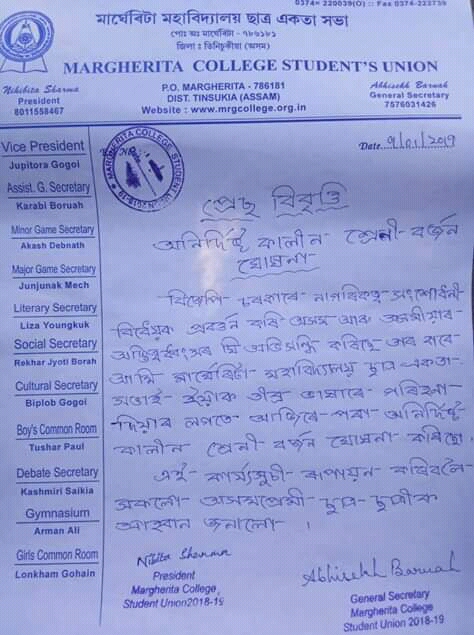 0374= 220039(O) :: Fax 0374-222739
মাৰ্ঘেৰিটা মহাবিদ্যালয় ছাত্ৰ একতা সভা
পোঃ অঃ মাৰ্ঘেৰিটা - ৭৮৬১৮১
জিলা ঃ তিনিচুকীয়া (অসম)
MARGHERITA COLLEGE STUDENT'S UNION
Nibibita Sharma
President
8011558467
P.O. MARGHERITA - 786181
DIST. TINSUKIA (ASSAM)
Website : www.mrgcollege.org.in
Abhisekh Baruah
General Secretary
7576031426
Vice President
Jupitora Gogoi
Assist. G. Secretary
Karabi Boruah
Minor Game Secretary
Akash Debnath
Major Game Secretary
Junjunak Mech
Literary Secretary
Liza Youngkuk
Social Secretary
Rekhar Jyoti Borah
Cultural Secretary
Biplob Gogoi
Boy's Common Room
Tushar Paul
Debate Secretary
Kashmiri Saikia
Gymnasium
Arman Ali
Girls Common Room
Lonkham Gohain
MARGHERITA COLLEGE STUDENT UNION 2018-19
Date. 9/01/2019
প্ৰেছ বিবৃতি
অনিৰ্দিষ্ট কালীন শ্ৰেনী বৰ্জন
ঘোষনা
বিজেপি চৰকাৰে নাগৰিকত্ব সংশোধনী
বিধেয়ক প্ৰবৰ্তন কৰি অসম আৰু অসমীয়াৰ
যি অভিসন্ধি কৰিছে তাৰ বাবে
আমি মাৰ্ঘেৰিটা মহাবিদ্যালয় ছাত্ৰ একতা
সভাই ইয়াক তীব্ৰ ভাষাৰে
দিয়াৰ লগতে আজিৰে পৰা অনিৰ্দিষ্ট
কালীন শ্ৰেনী বৰ্জন ঘোষনা কৰিছো
এই কাৰ্য্যসূচী ৰূপায়ন কৰিবলৈ
সকলো অসমপ্ৰেমী ছাত্ৰ-ছাত্ৰীক
আহবান জনালো।
Nibita Sharma
President
Margherita College
Student Union2018-19
Abhisekh Baruah
General Secretary
Margherita College
Student Union 2018-19